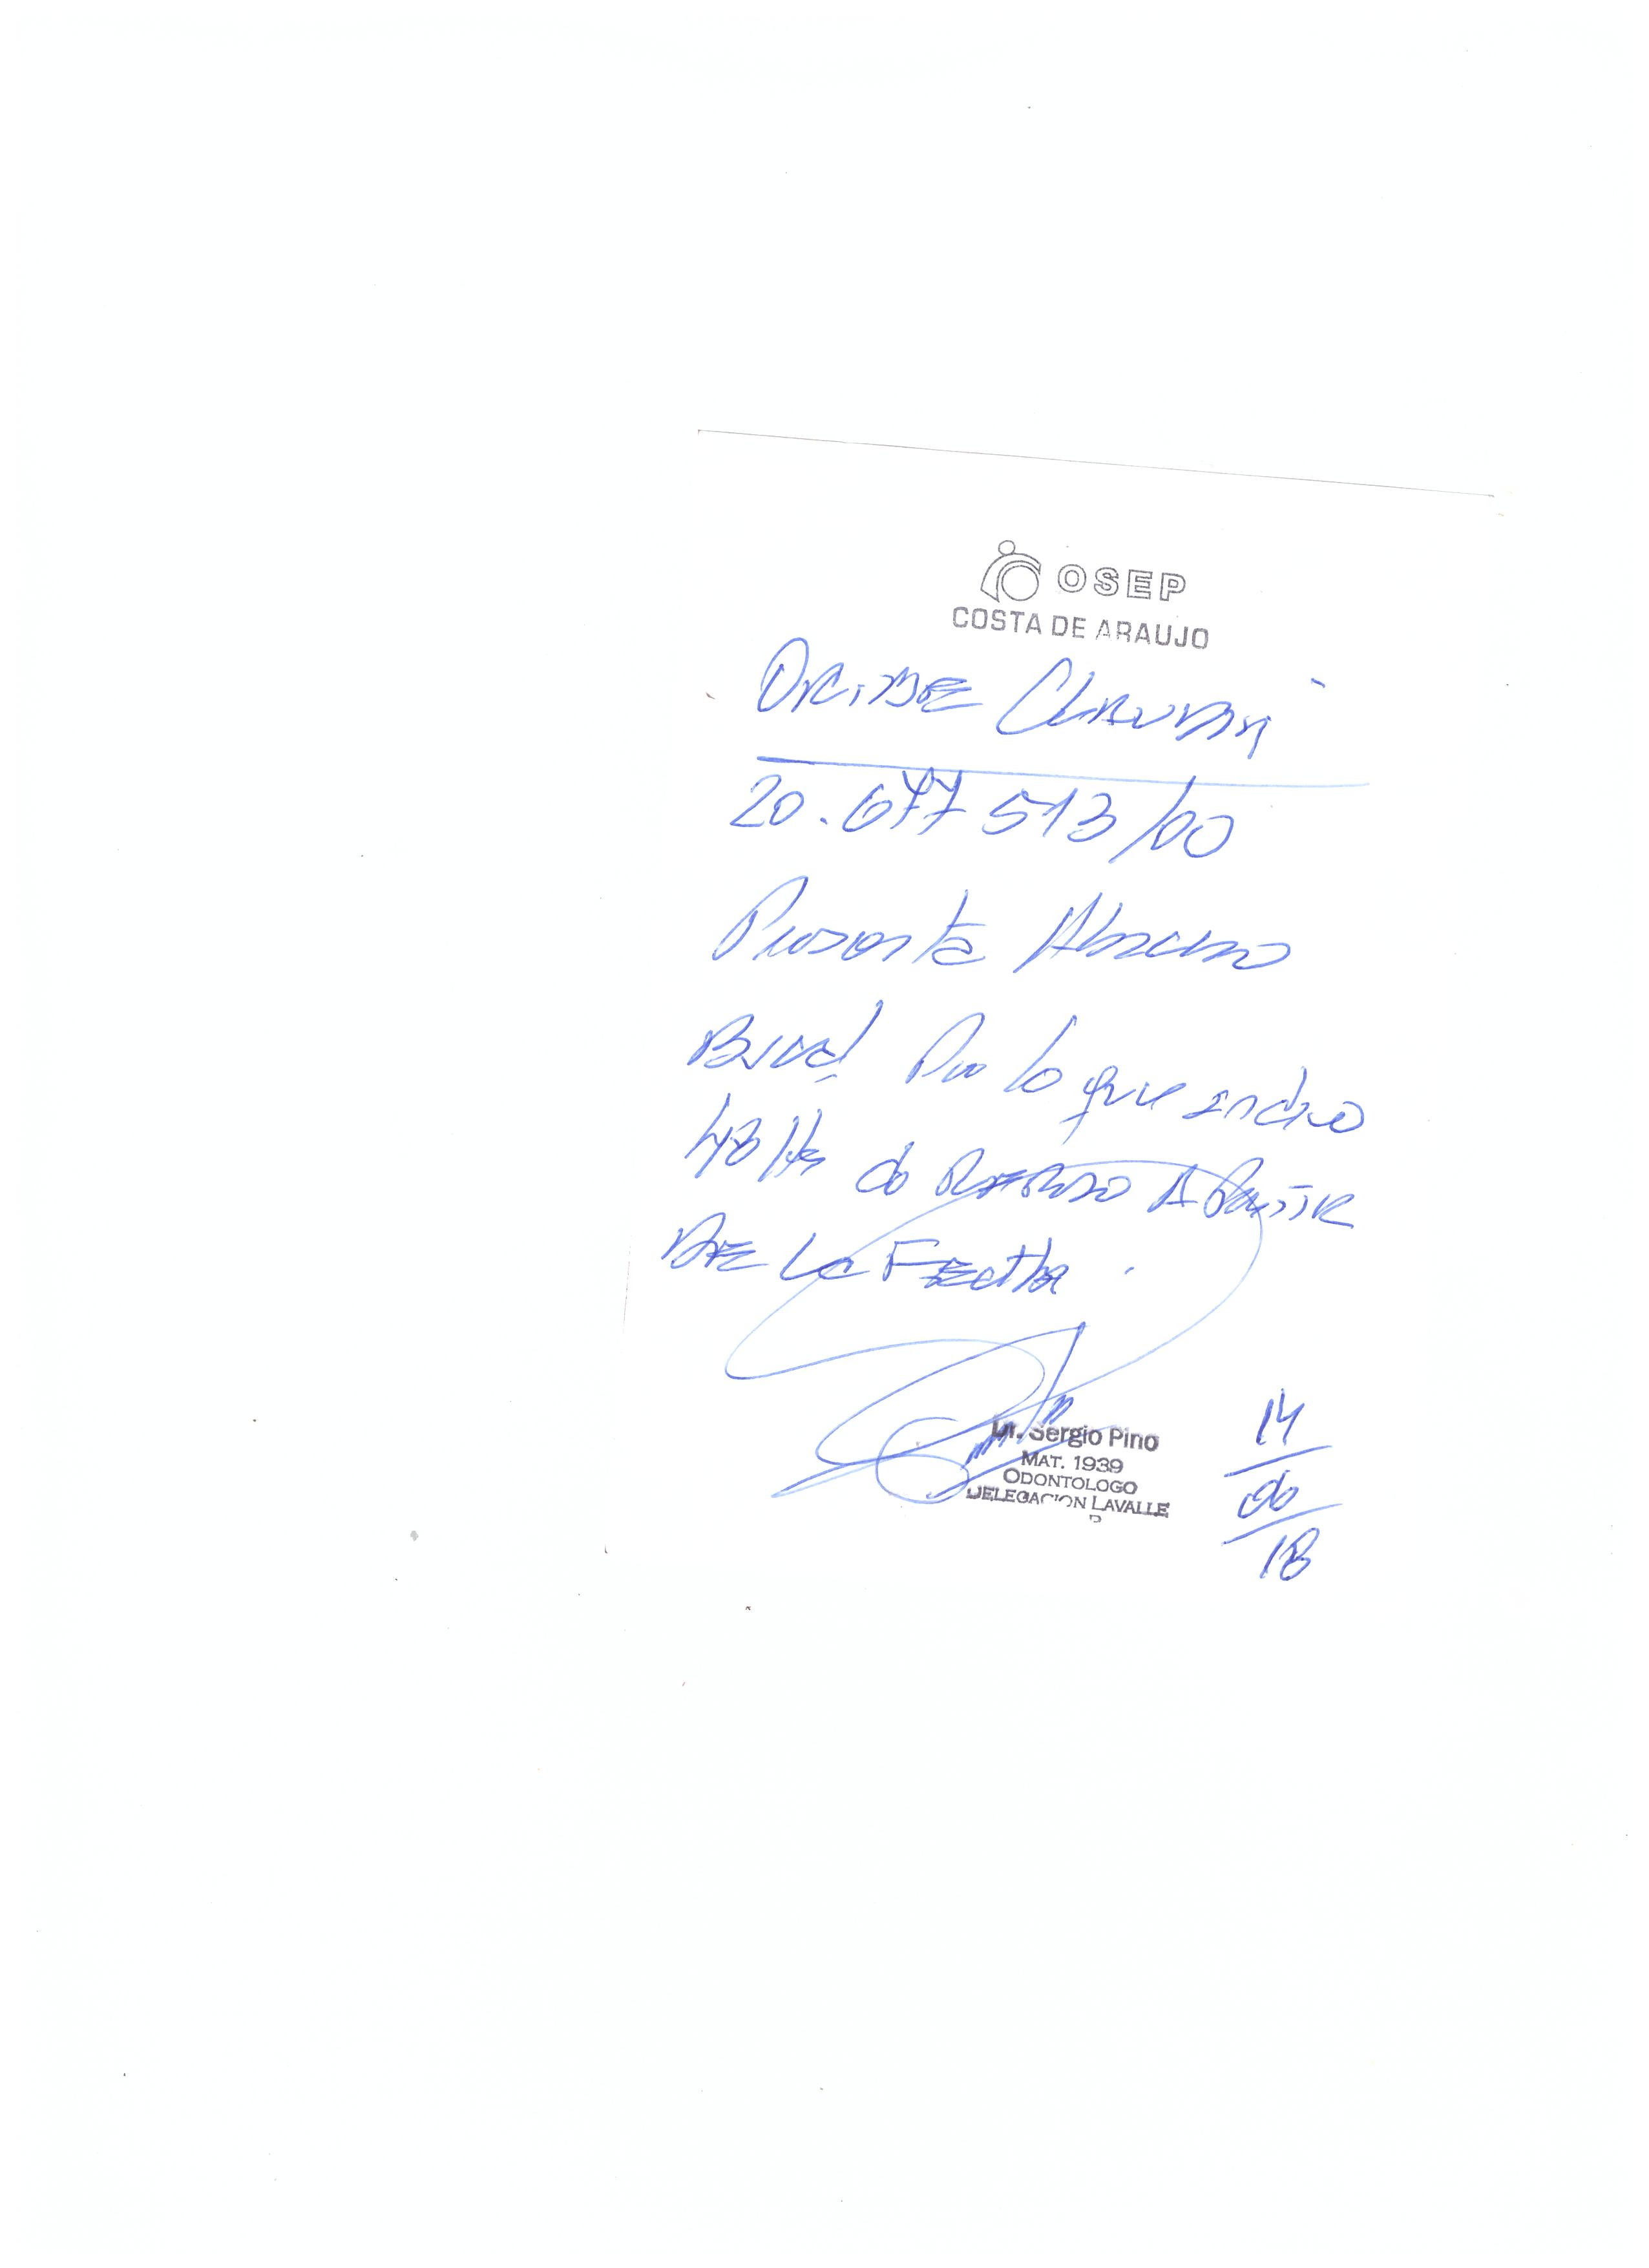 OSEP
COSTA DE ARAUJO
Claudia
20.677513/00
Presenta Absceso
Bucal Por lo que indico
48 Hs de Reposo A Partir
DE La FEcHa.
Dr. Sergio Pino
MAT. 1939
ODONTOLOGO
DELEGACION LAVALLE
14
18